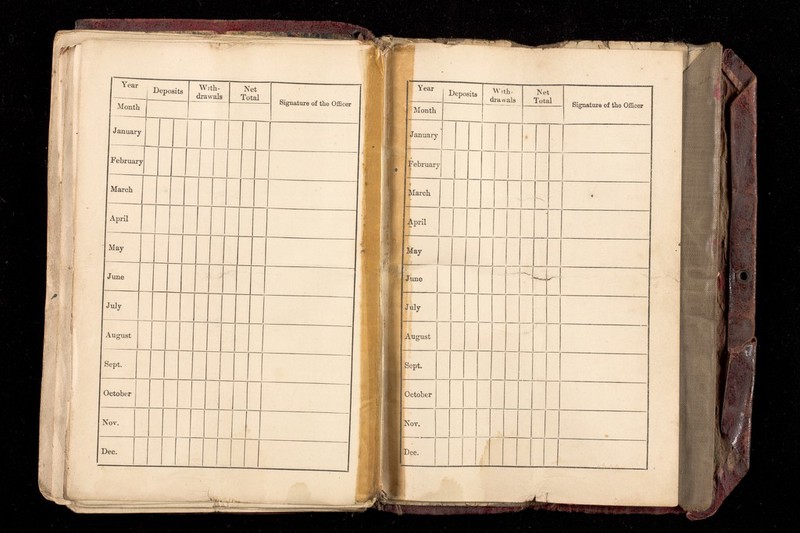 Year Deposits With- Net Signature of the Officer
drawals Total
Month
January
February
March
April
May
June
July
August
Sept.
October
Nov.
Dec.
Year Deposits With- Net Signature of the Officer
drawals Total
Month
January
February
March
April
May
June
July
August
Sept.
October
Nov.
Dec.